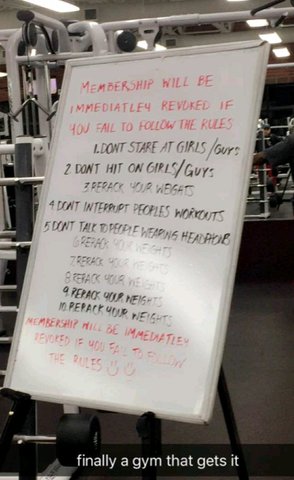 MEMBERSHIP WILL BE
IMMEDIATLEY REVOKED IF
YOU FAIL TO FOLLOW THE RULES
1. DONT STARE AT GIRLS/GUYS
2. DONT HIT ON GIRLS/GUYS
3. RERACK YOUR WEIGHTS
4. DONT INTERRUPT PEOPLES WORKOUTS
5 DONT TALK TO PEOPLE WEARING HEADPHONES
6 RERACK YOUR WEIGHTS
7. RERACK YOUR WEIGHTS
8. RERACK YOUR WEIGHTS
9. RERACK YOUR WEIGHTS
10. RERACK YOUR WEIGHTS
MEMBERSHIP WILL BE IMMEDIATLEY
REVOKED IF YOU FAIL TO FOLLOW
THE RULES
finally a gym that gets it